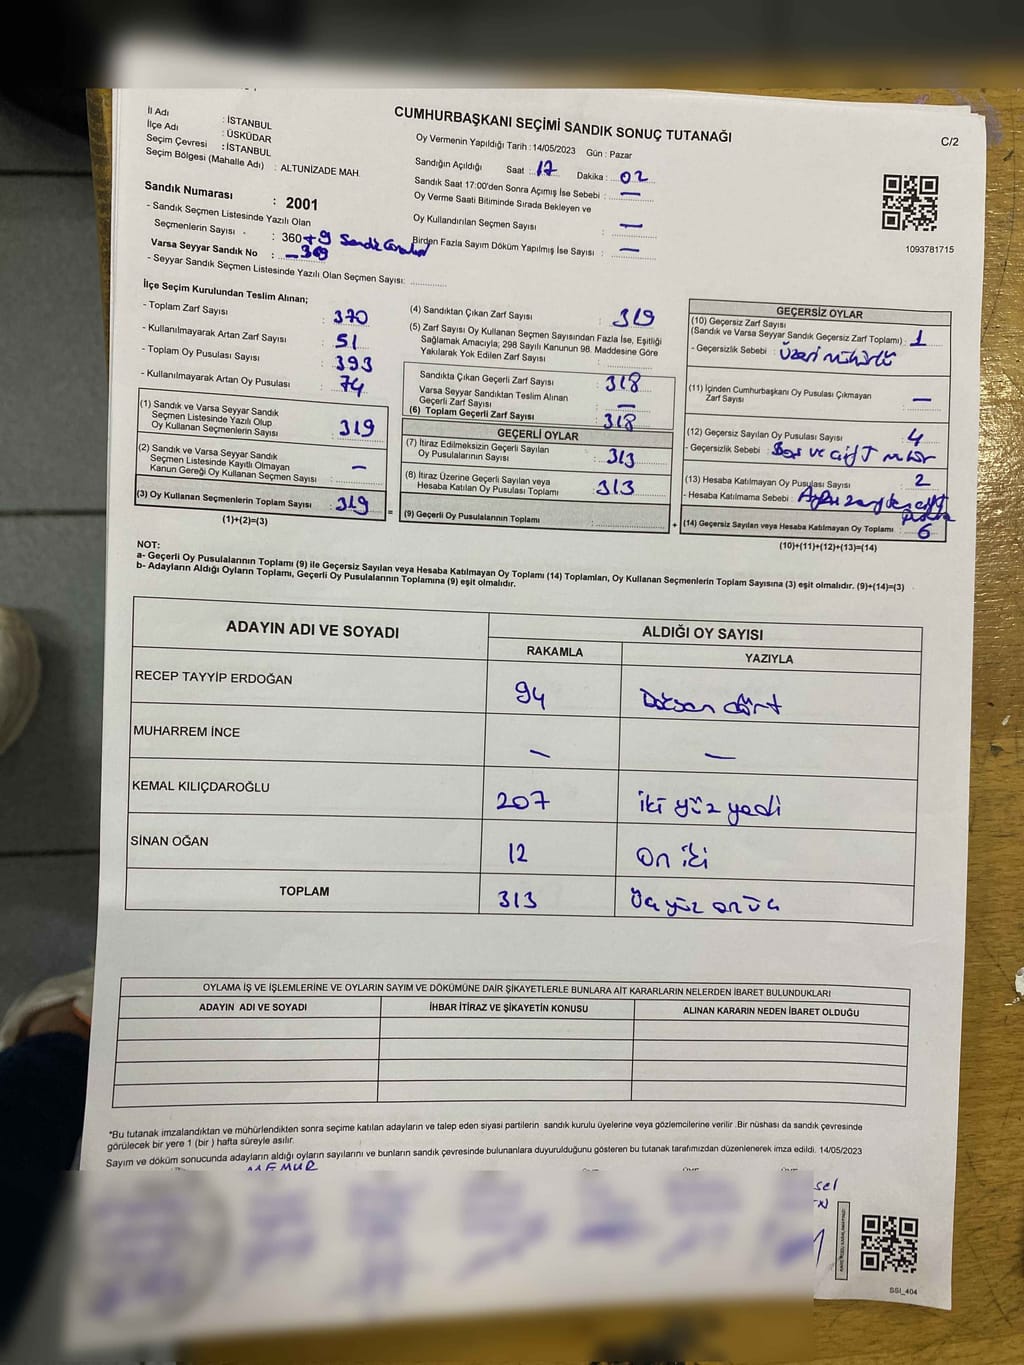 CUMHURBAŞKANI SEÇİMİ SANDIK SONUÇ TUTANAĞI
C/2
İl Adı : İSTANBUL
İlçe Adı : ÜSKÜDAR
Seçim Çevresi : İSTANBUL
Seçim Bölgesi (Mahalle Adı) : ALTUNİZADE MAH.
Sandık Numarası : 2001
- Sandık Seçmen Listesinde Yazılı Olan
Seçmenlerin Sayısı : 360 +9 Sandık
Varsa Seyyar Sandık No : 369
- Seyyar Sandık Seçmen Listesinde Yazılı Olan Seçmen Sayısı:
Oy Vermenin Yapıldığı Tarih : 14/05/2023 Gün : Pazar
Sandığın Açıldığı Saat : 17 Dakika : 02
Sandık Saat 17:00'den Sonra Açılmış İse Sebebi : —
Oy Verme Saati Bitiminde Sırada Bekleyen ve
Oy Kullandırılan Seçmen Sayısı : —
Birden Fazla Sayım Döküm Yapılmış İse Sayısı : —
1093781715
İlçe Seçim Kurulundan Teslim Alınan;
- Toplam Zarf Sayısı : 370
- Kullanılmayarak Artan Zarf Sayısı : 51
- Toplam Oy Pusulası Sayısı : 393
- Kullanılmayarak Artan Oy Pusulası : 74
(1) Sandık ve Varsa Seyyar Sandık
Seçmen Listesinde Yazılı Olup
Oy Kullanan Seçmenlerin Sayısı : 319
(2) Sandık ve Varsa Seyyar Sandık
Seçmen Listesinde Kayıtlı Olmayan
Kanun Gereği Oy Kullanan Seçmen Sayısı : —
(3) Oy Kullanan Seçmenlerin Toplam Sayısı : 319
(1)+(2)=(3)
=
(4) Sandıktan Çıkan Zarf Sayısı : 319
(5) Zarf Sayısı Oy Kullanan Seçmen Sayısından Fazla İse, Eşitliği
Sağlamak Amacıyla; 298 Sayılı Kanunun 98. Maddesine Göre
Yakılarak Yok Edilen Zarf Sayısı :
Sandıkta Çıkan Geçerli Zarf Sayısı : 318
Varsa Seyyar Sandıktan Teslim Alınan
Geçerli Zarf Sayısı : —
(6) Toplam Geçerli Zarf Sayısı : 318
GEÇERLİ OYLAR
(7) İtiraz Edilmeksizin Geçerli Sayılan
Oy Pusulalarının Sayısı : 313
(8) İtiraz Üzerine Geçerli Sayılan veya
Hesaba Katılan Oy Pusulası Toplamı : 313
(9) Geçerli Oy Pusulalarının Toplamı :
+
GEÇERSİZ OYLAR
(10) Geçersiz Zarf Sayısı
(Sandık ve Varsa Seyyar Sandık Geçersiz Zarf Toplamı) : 1
- Geçersizlik Sebebi : Üzeri mühürlü
(11) İçinden Cumhurbaşkanı Oy Pusulası Çıkmayan
Zarf Sayısı : —
(12) Geçersiz Sayılan Oy Pusulası Sayısı : 4
- Geçersizlik Sebebi : Boş ve çift mühür
(13) Hesaba Katılmayan Oy Pusulası Sayısı : 2
- Hesaba Katılmama Sebebi : Aynı zarftan
(14) Geçersiz Sayılan veya Hesaba Katılmayan Oy Toplamı : 6
(10)+(11)+(12)+(13)=(14)
NOT:
a- Geçerli Oy Pusulalarının Toplamı (9) ile Geçersiz Sayılan veya Hesaba Katılmayan Oy Toplamı (14) Toplamları, Oy Kullanan Seçmenlerin Toplam Sayısına (3) eşit olmalıdır. (9)+(14)=(3)
b- Adayların Aldığı Oyların Toplamı, Geçerli Oy Pusulalarının Toplamına (9) eşit olmalıdır.
ADAYIN ADI VE SOYADI
ALDIĞI OY SAYISI
RAKAMLA YAZIYLA
RECEP TAYYİP ERDOĞAN 94 Doksan dört
MUHARREM İNCE — —
KEMAL KILIÇDAROĞLU 207 iki yüz yedi
SİNAN OĞAN 12 On iki
TOPLAM 313 Üç yüz on üç
OYLAMA İŞ VE İŞLEMLERİNE VE OYLARIN SAYIM VE DÖKÜMÜNE DAİR ŞİKAYETLERLE BUNLARA AİT KARARLARIN NELERDEN İBARET BULUNDUKLARI
ADAYIN ADI VE SOYADI İHBAR İTİRAZ VE ŞİKAYETİN KONUSU ALINAN KARARIN NEDEN İBARET OLDUĞU
*Bu tutanak imzalandıktan ve mühürlendikten sonra seçime katılan adayların ve talep eden siyasi partilerin sandık kurulu üyelerine veya gözlemcilerine verilir. Bir nüshası da sandık çevresinde
görülecek bir yere 1 (bir) hafta süreyle asılır.
Sayım ve döküm sonucunda adayların aldığı oyların sayılarını ve bunların sandık çevresinde bulunanlara duyurulduğunu gösteren bu tutanak tarafımızdan düzenlenerek imza edildi. 14/05/2023
MEMUR
SSI_404